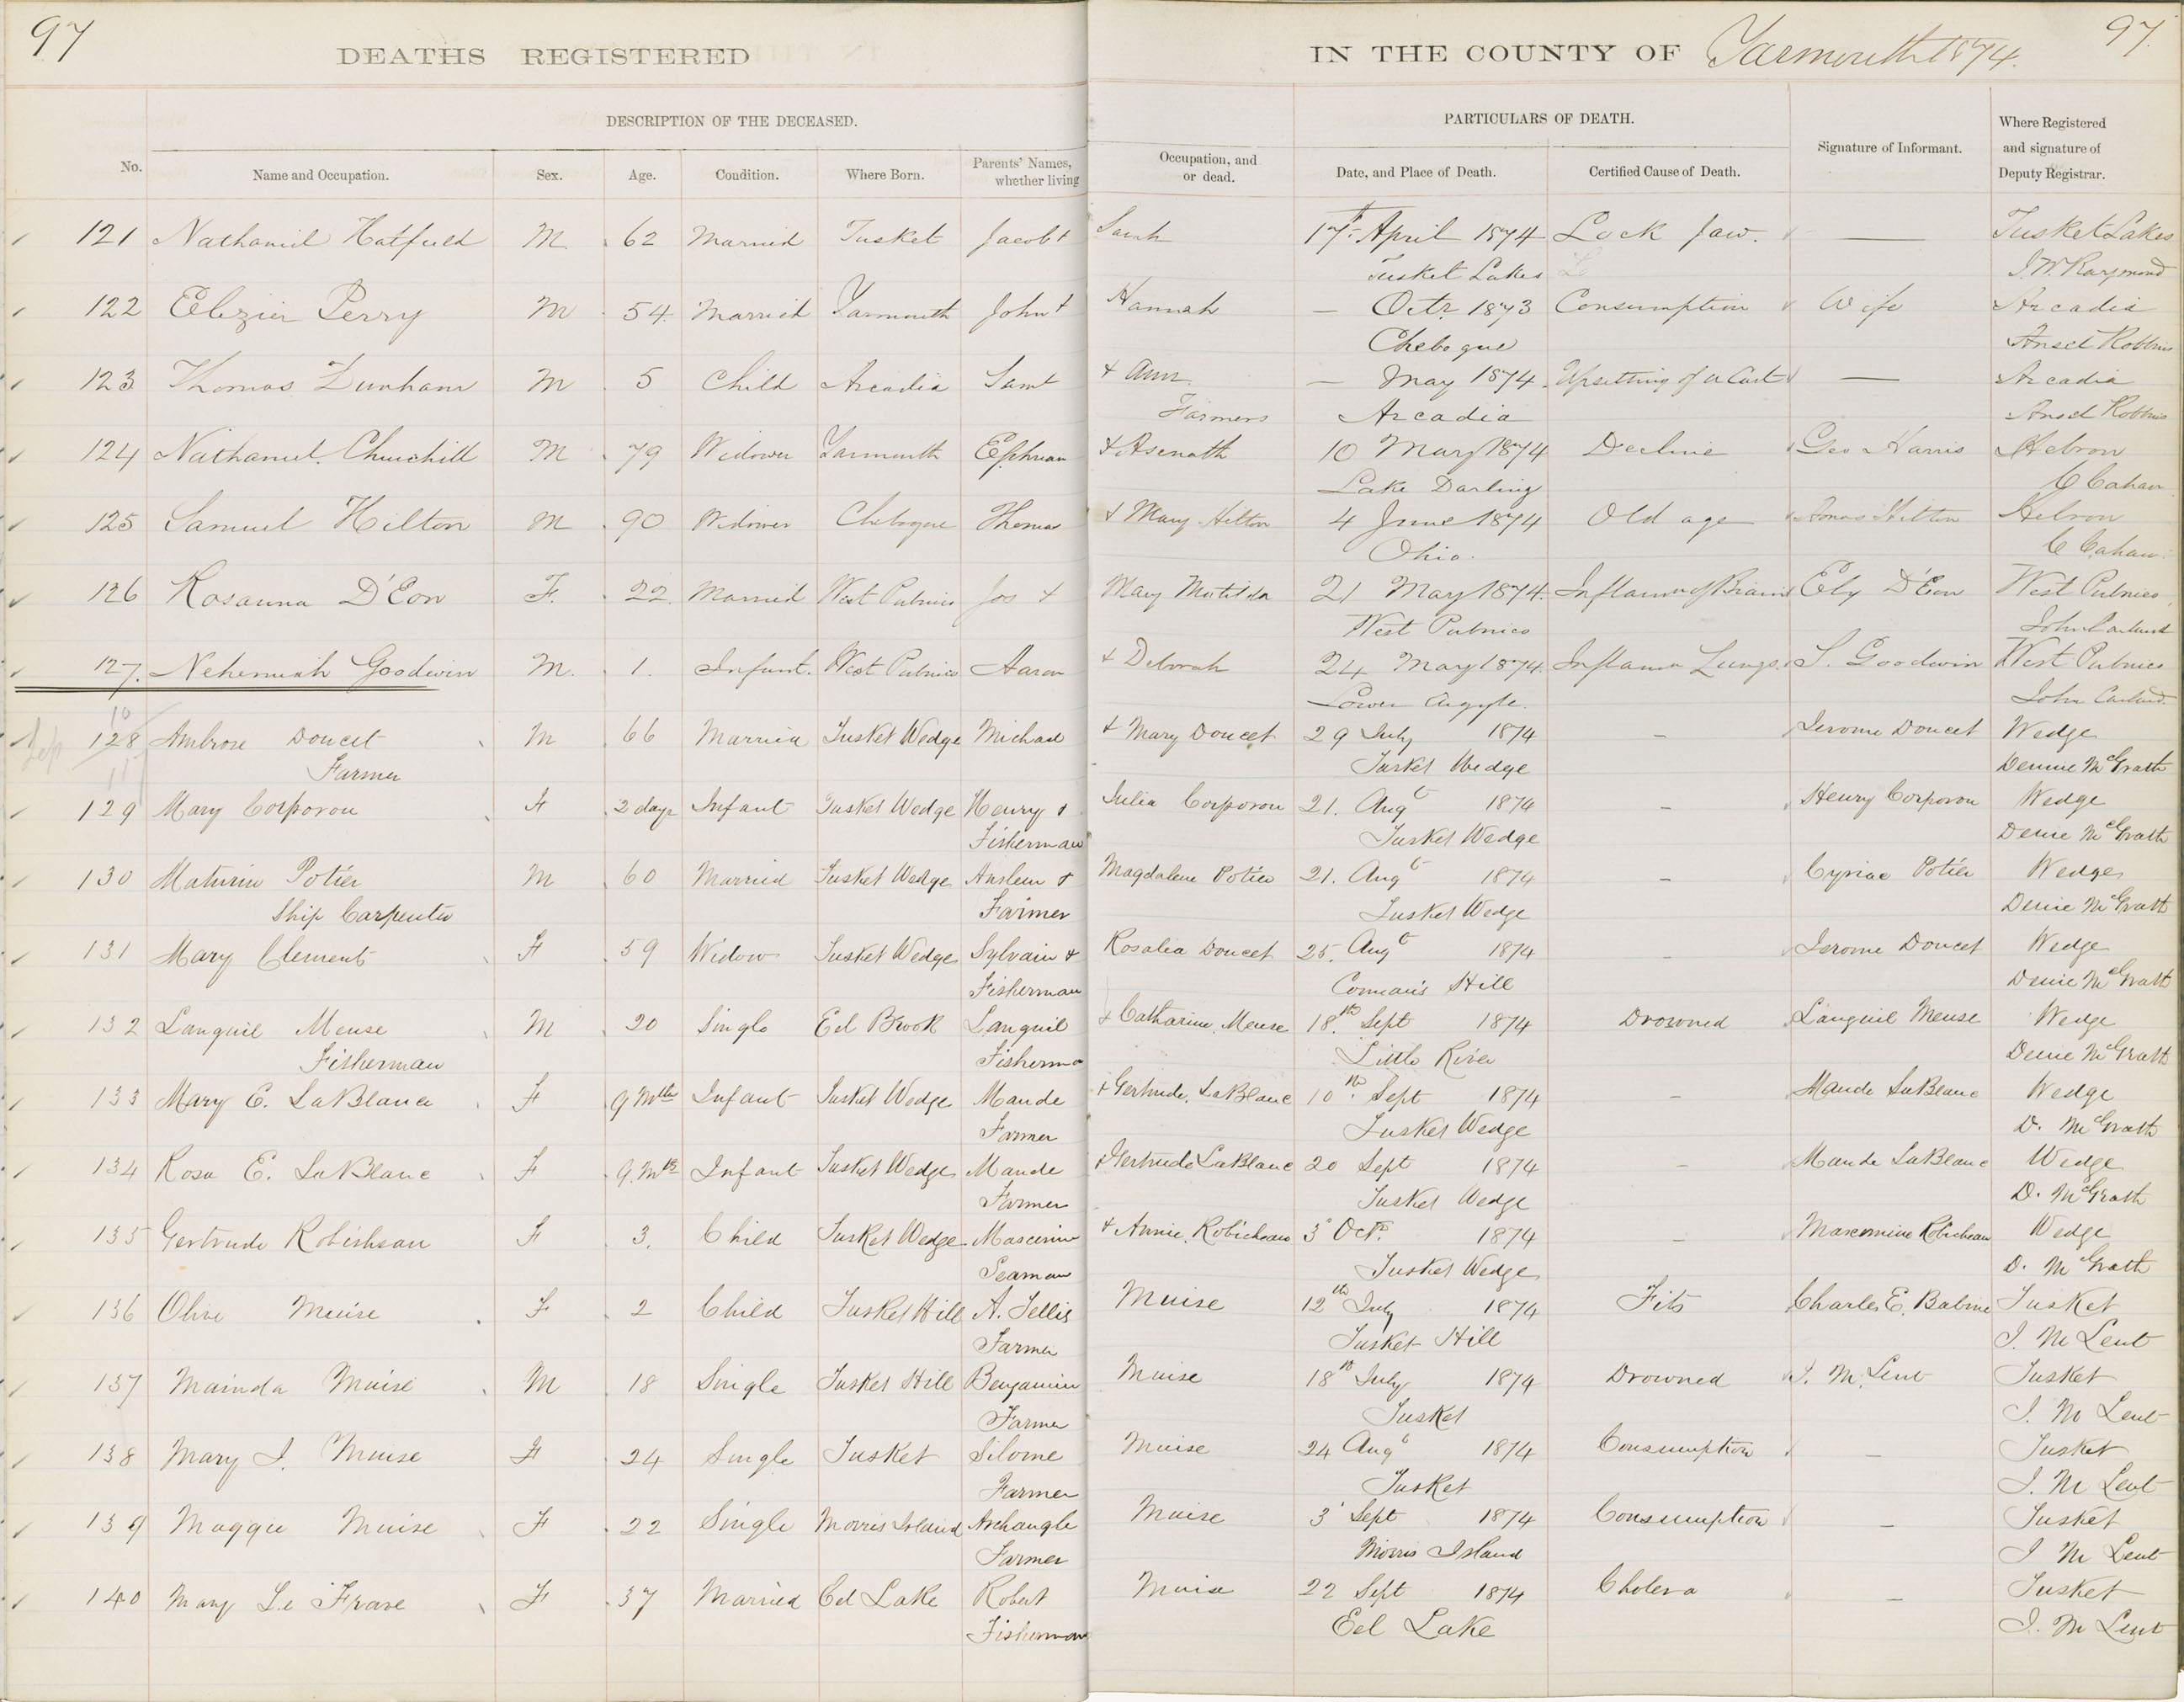 97 DEATHS REGISTERED IN THE COUNTY OF Yarmouth 1874. 97
DESCRIPTION OF THE DECEASED. PARTICULARS OF DEATH.
No. Name and Occupation. Sex. Age. Condition. Where Born. Parents' Names, whether living Occupation, and or dead. Date, and Place of Death. Certified Cause of Death. Signature of Informant. Where Registered and signature of Deputy Registrar.
121 Nathaniel Hatfield M. 62 Married Tusket Jacob + Sarah 17th April 1874 Lock Jaw. — Tusket Lakes
Tusket Lakes J. W. Raymond
122 Elezier Perry M 54 Married Yarmouth John + Hannah — Octr 1873 Consumption Wife Arcadia
Chebogue Ansel Robbins
123 Thomas Dunham M 5 Child Arcadia Saml + Ann. — May 1874 Upsetting of a Cart — Arcadia
Farmers Arcadia Ansel Robbins
124 Nathaniel Churchill M 79 Widower Yarmouth Ephram + Asenath 10 May 1874 Decline Geo Harris Hebron
Lake Darling C Cahan
125 Samuel Hilton M 90 Widower Chebogue Thomas + Mary Hilton 4 June 1874 Old age Amos Hilton Hebron
Ohio. C Cahan
126 Rosanna D'Eon F. 22. Married West Pubnico Jos + Mary Matilda 21 May 1874. Inflam of Brain Ely D'Eon West Pubnico
West Pubnico John Carland
127. Nehemiah Goodwin M. 1. Infant. West Pubnico Aaron + Deborah 24 May 1874. Inflam Lungs. S. Goodwin West Pubnico
Lower Argyle. John Carland
10
128 Ambrose Doucet M 66 Married Tusket Wedge Michael + Mary Doucet 29 July 1874 — Jerome Doucet Wedge
11 Farmer Tusket Wedge Denice McGrath
129 Mary Corporon F 2 days Infant Tusket Wedge Henry + Julia Corporon 21. Augt 1874 — Henry Corporon Wedge
Fisherman Tusket Wedge Denice McGrath
130 Maturin Potier M 60 Married Tusket Wedge Anslem + Magdalene Potier 21. Augt 1874 — Cyriac Potier Wedge
Ship Carpenter Farmer Tusket Wedge Denice McGrath
131 Mary Clement F 59 Widow Tusket Wedge Sylvain + Rosalia Doucet 25. Augt 1874 — Jerome Doucet Wedge
Fisherman Comeau's Hill Denice McGrath
132 Languil Meuse M 20 Single Eel Brook Languil + Catharine Meuse 18.th Sept 1874 Drowned Languil Meuse Wedge
Fisherman Fisherma Little River Denice McGrath
133 Mary E. LaBlanc F 9 Mths Infant Tusket Wedge Mande + Gertrude LaBlanc 10th Sept 1874 — Mande LaBlanc Wedge
Farmer Tusket Wedge D. McGrath
134 Rosa E. LaBlanc F 9. Mths Infant Tusket Wedge Mande + Gertrude LaBlanc 20 Sept 1874 — Mande LaBlanc Wedge
Farmer Tusket Wedge D. McGrath
135 Gertrude Robisheau F 3. Child Tusket Wedge + Annie Robicheau 3 Oct. 1874 — Robicheau Wedge
Seaman Tusket Wedge D. McGrath
136 Olive Muise F 2 Child Tusket Hill A. Tellis Muise 12th July 1874 Fits Charles E. Babine Tusket
Farmer Tusket Hill J. M Lent
137 Mainda Muise M 18 Single Tusket Hill Benjamin Muise 18th July 1874 Drowned J. M. Lent Tusket
Farmer Tusket J. M Lent
138 Mary J. Muise F 24 Single Tusket Silvine Muise 24 Augt 1874 Consumption — Tusket
Farmer Tusket J. M Lent
139 Maggie Muise F 22 Single Morris Island Archangle Muise 3 Sept 1874 Consumption — Tusket
Farmer Morris Island J M Lent
140 Mary Le Frave F 37 Married Eel Lake Robert Muise 22 Sept 1874 Cholera — Tusket
Fisherman Eel Lake J. M Lent